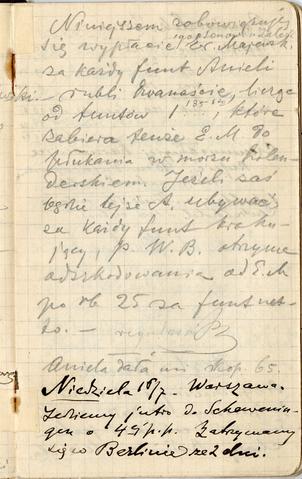 Niniejszem zobowiązuję
się wypłacić Er. Majewsk.
za każdy funt Anieli
rubli dwanaście, licząc
od funtów 1 135 , które
zabiera tenże E. M. do
płukania w morzu Holen-
derskiem. Jeżeli zaś
będzie tejże A. ubywać
za każdy funt braku-
jący, p. W. B. otrzyma
odszkodowania od E. M.
po rb 25 za funt net-
to. —
Aniela dała mi kop. 65.
Niedziela 18/7. Warszawa.
Jedziemy jutro do Schevenin-
gen o 4 p.p. Zatrzymamy
się w Berlinie ze 2 dni.